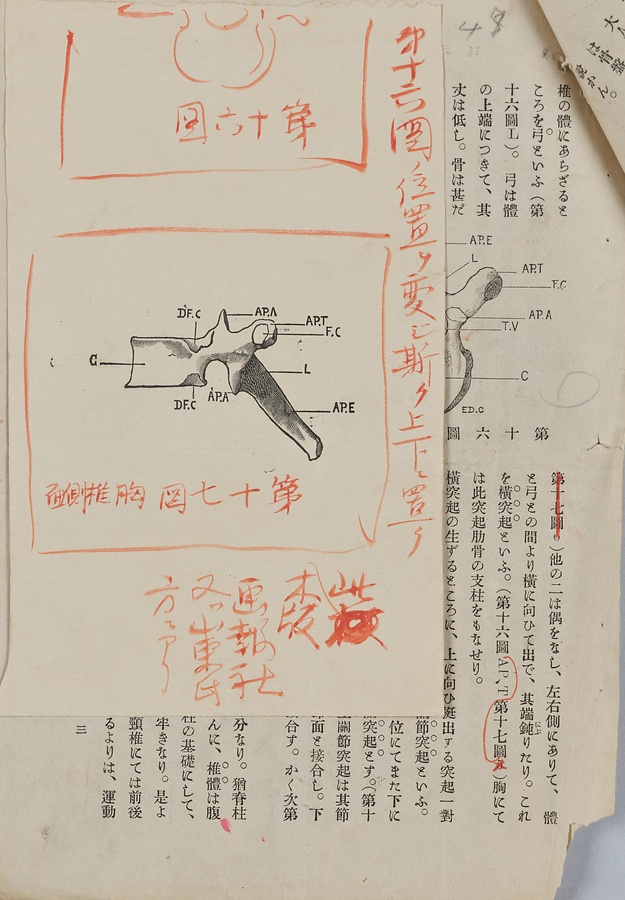 大
は骨盤
48
椎の體にあらざると
ころを弓といふ(第
十六圖L)。弓は體
の上端につきて、其
丈は低し。骨は甚だ
AP.E
L
AP.T
F.C
AP.A
T.V
C
ED.C
第十六圖
第十六圖ノ位置ヲ變ジ斯ク上下ニ置ク
第十六圖
D'F.C
AP.A
AP.T
F.C
C
L
DF.C
AP.A
AP.E
第十七圖 胸椎側面
此
木版
画報社
又ハ山東氏
方ニアリ
第十七圖。)他の二は偶をなし、左右側にありて、體
と弓との間より横に向ひて出で、其端鈍りたり。これ
にぶ
を横突起といふ。(第十六圖AP.T第十七圖)胸にて
は此突起肋骨の支柱をもなせり。
横突起の生ずるところに、上に向ひ挺出する突起一對
節突起といふ。
位にてまた下に
突起とす。(第十
關節突起は其節
面と接合し。下
合す。かく次第
分なり。猶脊柱
んに、椎體は腹
柱の基礎にして、
牢きなり。是よ
頸椎にては前後
るよりは、運動
三